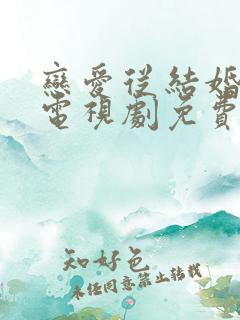 戀愛從結婚
電視劇免費
知好色
未經同意禁止轉載